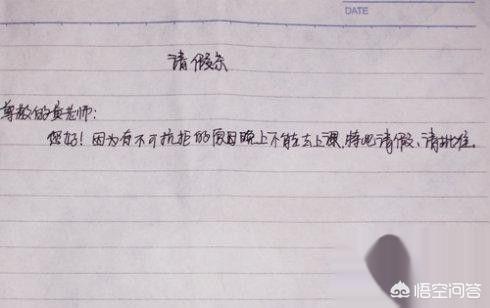 DATE
请假条
尊敬的黄老师：
您好！因为有不可抗拒的原因晚上不能去上课，特此请假、请批准。
悟空问答